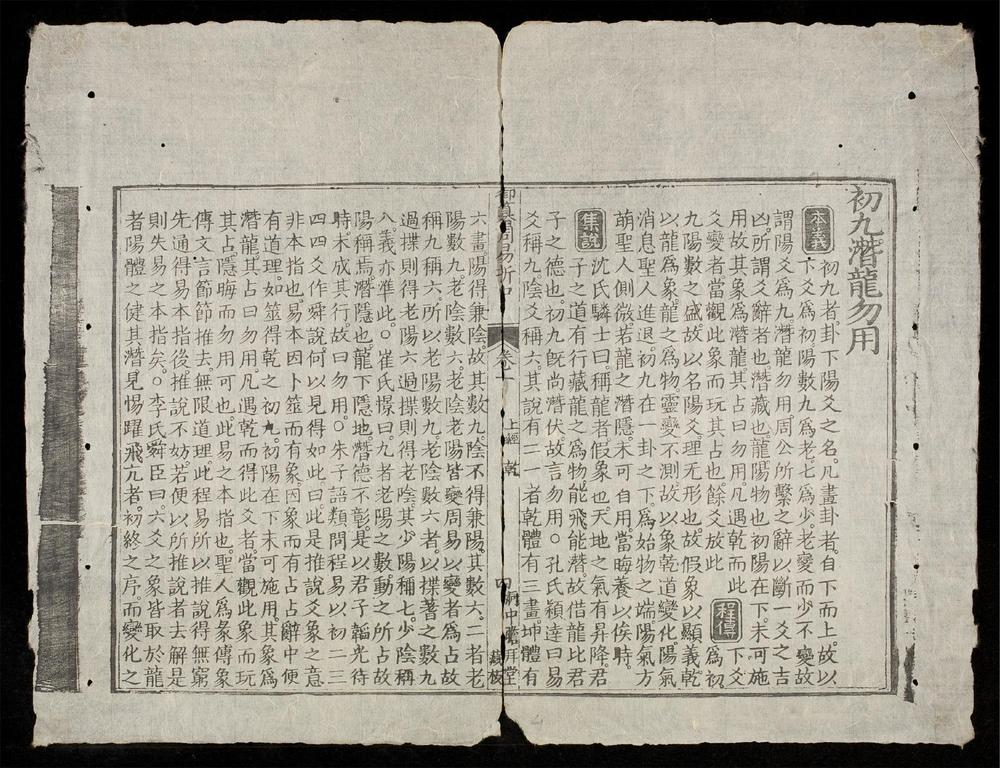 初九潛龍勿用
本義 初九者卦下陽爻之名。凡畫卦者。自下而上。故以
下爻爲初。陽數九爲老。七爲少。老變而少不變。故
謂陽爻爲九。潛龍勿用。周公所繫之辭。以斷一爻之吉
凶。所謂爻辭者也。潛藏也。龍陽物也。初陽在下。未可施
用。故其象爲潛龍。其占曰勿用。凡遇乾而此 程傳 下爻
爻變者。當觀此象而玩其占也。餘爻放此 爲初
九陽數之盛。故以名陽爻。理无形也。故假象以顯義。乾
以龍爲象。龍之爲物。靈變不測。故以象乾道變化。陽氣
消息。聖人進退。初九在一卦之下。爲始物之端。陽氣方
萌。聖人側微。若龍之潛隱。未可自用。當晦養以俟時。
集說 沈氏驎士曰。稱龍者。假象也。天地之氣有昇降。君
子之道有行藏。龍之爲物。能飛能潛。故借龍比君
子之德也。初九旣尚潛伏。故言勿用。○孔氏穎達曰。易
爻稱九。陰爻稱六。其說有二。一者乾體有三畫。坤體有
御纂周易折中 卷一 上經 乾 四 藏板
六畫。陽得兼陰。故其數九。陰不得兼陽。其數六。二者老
陽數九。老陰數六。老陰老陽皆變。周易以變者爲占。故
稱九稱六。所以老陽數九。老陰數六者。以揲蓍之數。九
過揲則得老陽。六過揲則得老陰。其少陽稱七。少陰稱
八。義亦準此。○崔氏憬曰。九者老陽之數。動之所占。故
陽稱焉。潛隱也。龍下隱地。潛德不彰。是以君子韜光待
時。未成其行。故曰勿用。○朱子語類。問程易以初二三
四四爻作舜說。何以見得如此。曰。此是推說爻象之意。
非本指也。易本因卜筮而有象。因象而有占。占辭中便
有道理。如筮得乾之初九。初陽在下。未可施用。其象爲
潛龍。其占曰勿用。凡遇乾而得此爻者。當觀此象而玩
其占。隱晦而勿用可也。此易之本指也。聖人爲彖傳象
傳文言。節節推去。無限道理。此程易所以推說得無窮。
先通得易本指後。推說不妨。若便以所推說者去解易。
則失易之本指矣。○李氏舜臣曰。六爻之象。皆取於龍
者。陽體之健。其潛見惕躍飛亢者。初終之序。而變化之